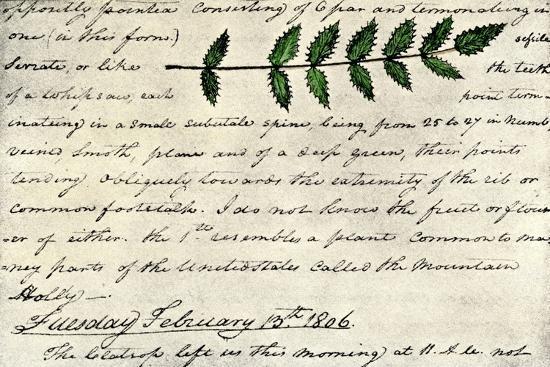 oppositly pointed consisting of 6 par and termonateing in
one (in this form.) sessile
Serrate, or like the teeth
of a whipsaw, each point term-
inateing in a small subulate spine, being from 25 to 27 in numb
veined, smoth, plane and of a deep green, their points
tending obliquely towards the extremity of the rib or
common footstalk. I do not know the fruit or flow
-er of either. the 1st resembles a plant common to ma-
-ney parts of the United States called the Mountain
Holly—.
Tuesday February 13th 1806.
The Clatsop left us this morning at 11. A.M. not